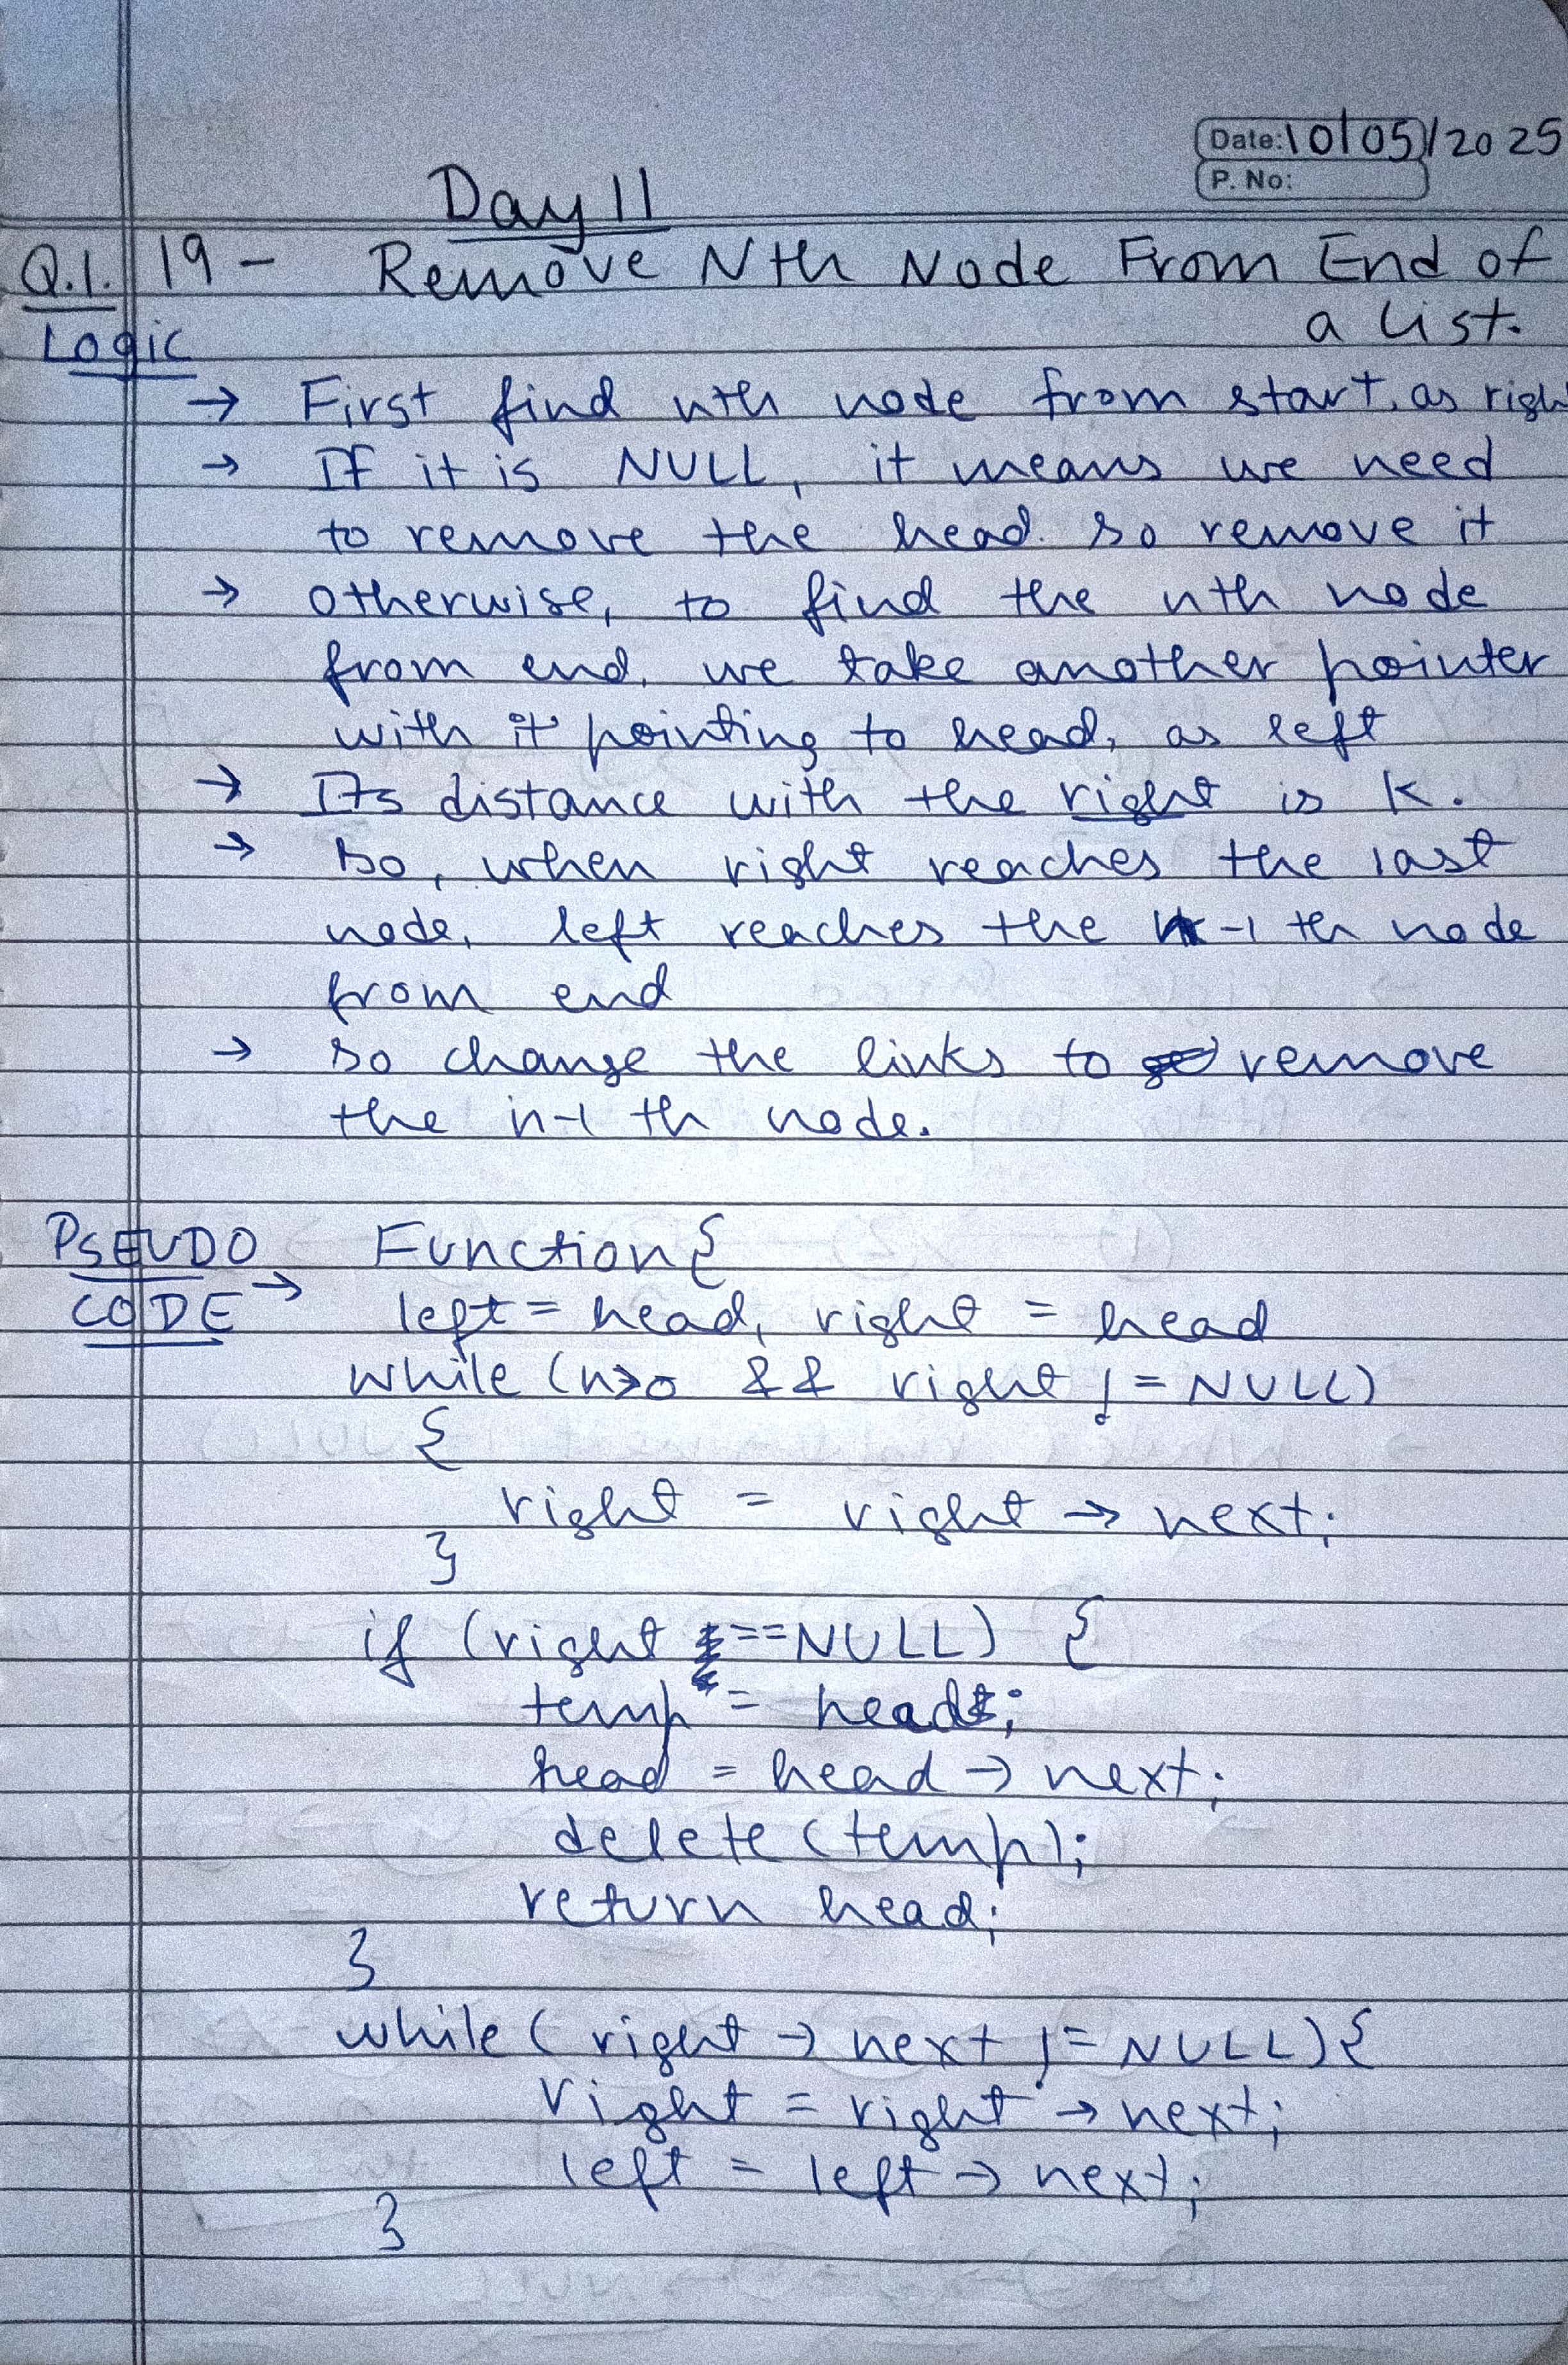 Date: 10/05/2025
P. No:
Day 11
Q.1. 19 - Remove Nth Node From End of
a list.
Logic
→ First find nth node from start, as righ
→ If it is NULL, it means we need
to remove the head. so remove it
→ otherwise, to find the nth node
from end, we take another pointer
with it pointing to head, as left
→ Its distance with the right is k.
→ so, when right reaches the last
node, left reaches the n-1 th node
from end
→ so change the links to remove
the n-1 th node.
PSEUDO Function {
CODE → left = head, right = head
while (n>0 && right != NULL)
{
right = right → next;
}
if (right == NULL) {
temp = head;
head = head → next;
delete (temp);
return head;
}
while ( right → next != NULL) {
right = right → next;
left = left → next;
}